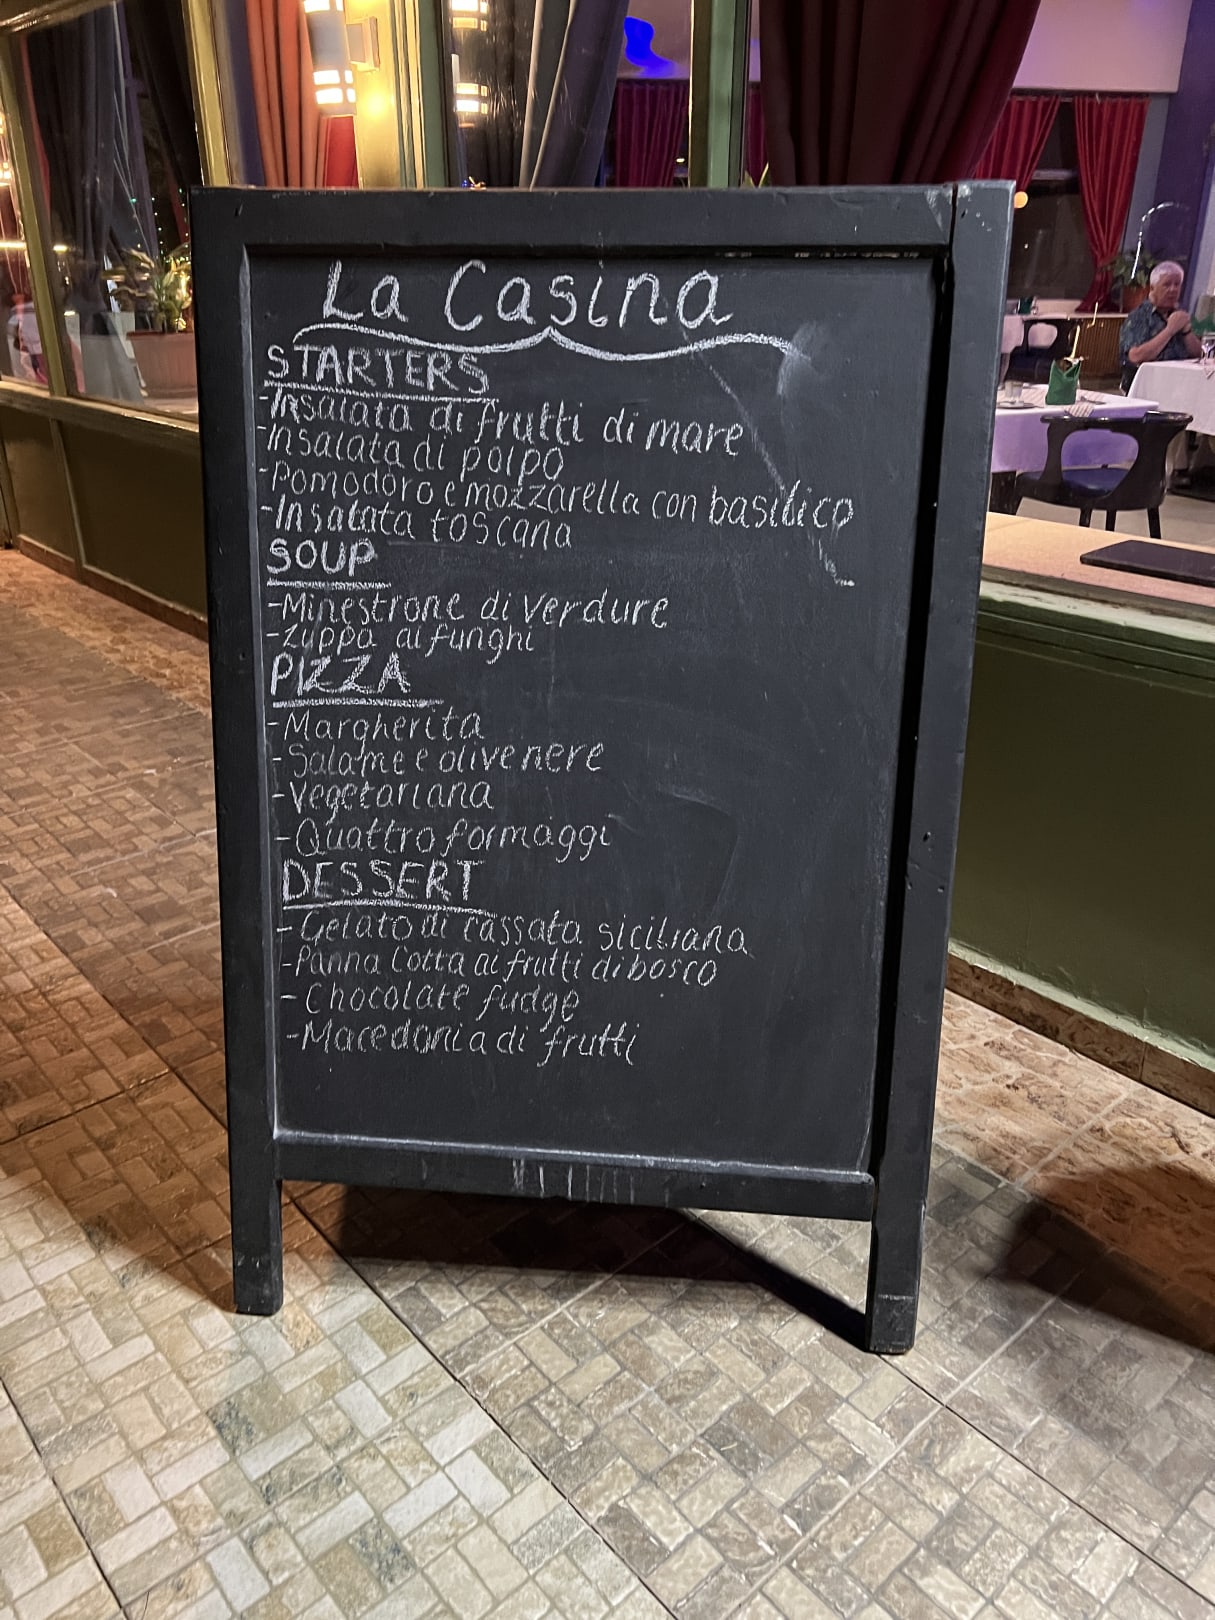 La Casina
STARTERS
-Insalata di frutti di mare
-Insalata di polpo
-Pomodoro e mozzarella con basilico
-Insalata toscana
SOUP
-Minestrone di verdure
-Zuppa ai funghi
PIZZA
-Margherita
-Salame e olive nere
-Vegetariana
-Quattro formaggi
DESSERT
-Gelato di cassata siciliana
-Panna Cotta ai frutti di bosco
-Chocolate fudge
-Macedonia di frutti